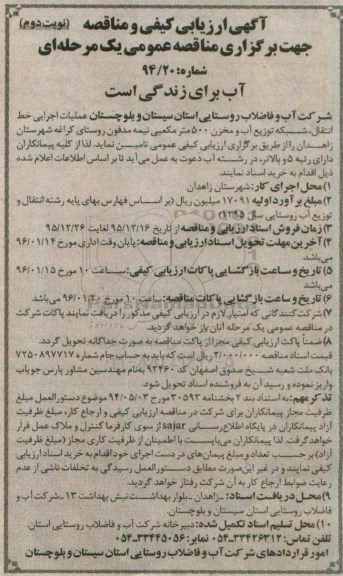 آگهی ارزیابی کیفی و مناقصه
(نوبت دوم)
جهت برگزاری مناقصه عمومی یک مرحله‌ای
شماره: ۹۴/۲۰
آب برای زندگی است
شرکت آب و فاضلاب روستایی استان سیستان و بلوچستان عملیات اجرایی خط
انتقال، شبکه توزیع آب و مخزن ۵۰۰ متر مکعبی نیمه مدفون روستای کراغه شهرستان
زاهدان را از طریق برگزاری ارزیابی کیفی عمومی تامین نماید. لذا از کلیه پیمانکاران
دارای رتبه ۵ و بالاتر، در رشته آب دعوت به عمل می‌آید تا بر اساس اطلاعات اعلام شده
ذیل اقدام به خرید اسناد نمایند.
۱) محل اجرای کار: شهرستان زاهدان
۲) مبلغ برآورد اولیه ۱۷۰۹۱ میلیون ریال (بر اساس فهارس بهای پایه رشته انتقال و
توزیع آب روستایی سال ۱۳۹۵)
۳) زمان فروش اسناد ارزیابی و مناقصه از تاریخ ۹۵/۱۲/۱۶ لغایت ۹۵/۱۲/۲۶
۴) آخرین مهلت تحویل اسناد ارزیابی و مناقصه: پایان وقت اداری مورخ ۹۶/۰۱/۱۴
می‌باشد.
۵) تاریخ و ساعت بازگشایی پاکات ارزیابی کیفی: ساعت ۱۰ مورخ ۹۶/۰۱/۱۵
می‌باشد
۶) تاریخ و ساعت بازگشایی پاکات مناقصه: ساعت ۱۰ مورخ ۹۶/۰۱/۲۰ می‌باشد
۷) شرکت‌کنندگانی که امتیاز لازم در ارزیابی کیفی مذکور را دریافت نمایند پاکات شرکت
در مناقصه عمومی یک مرحله آنان باز خواهد گردید.
۸) ضمناً پاکت ارزیابی کیفی مجزا از پاکت مناقصه به صورت جداگانه تحویل گردد.
قیمت اسناد مناقصه ۲/۰۰۰/۰۰۰ ریال است که باید به حساب جام شماره ۷۲۵۰۸۹۷۷۱۷
بانک ملت شعبه شیخ صدوق اصفهان کد ۹۲۴۶۰ به‌نام مهندسین مشاور پارس جویاب
واریز نموده و رسید آن به فروشنده اسناد تحویل شود.
تذکر مهم: به استناد بند ۲ بخشنامه ۳۰۵۹۳ مورخ ۹۴/۰۵/۰۳ موضوع دستورالعمل مبلغ
ظرفیت مجاز پیمانکاران برای شرکت در مناقصه ارزیابی کیفی و ارجاع کار، مبلغ ظرفیت
آزاد پیمانکاران در پایگاه اطلاع‌رسانی sajar از سوی کارفرما کنترل و ملاک عمل قرار
خواهد گرفت. لذا پیمانکاران می‌بایست با اطمینان از ظرفیت کاری مجاز (مبلغ ظرفیت
آزاد) بر حسب تعداد و مبلغ پیمان‌های در دست اجرای خود اقدام به خرید اسناد ارزیابی
کیفی نمایند و در غیر این صورت مطابق دستورالعمل رسیدگی به تخلفات ناشی از عدم
رعایت ضوابط ارجاع کار به آن شرکت رفتار خواهد گردید.
۹) محل دریافت اسناد: زاهدان - بلوار بهداشت نبش بهداشت ۱۳ - شرکت آب و
فاضلاب روستایی استان سیستان و بلوچستان.
۱۰) محل تسلیم اسناد تکمیل شده: دبیرخانه شرکت آب و فاضلاب روستایی استان.
تلفن تماس: ۳۳۴۲۶۳۱۲-۰۵۴ نمابر: ۳۳۴۴۵۰۵۶-۰۵۴
امور قراردادهای شرکت آب و فاضلاب روستایی استان سیستان و بلوچستان